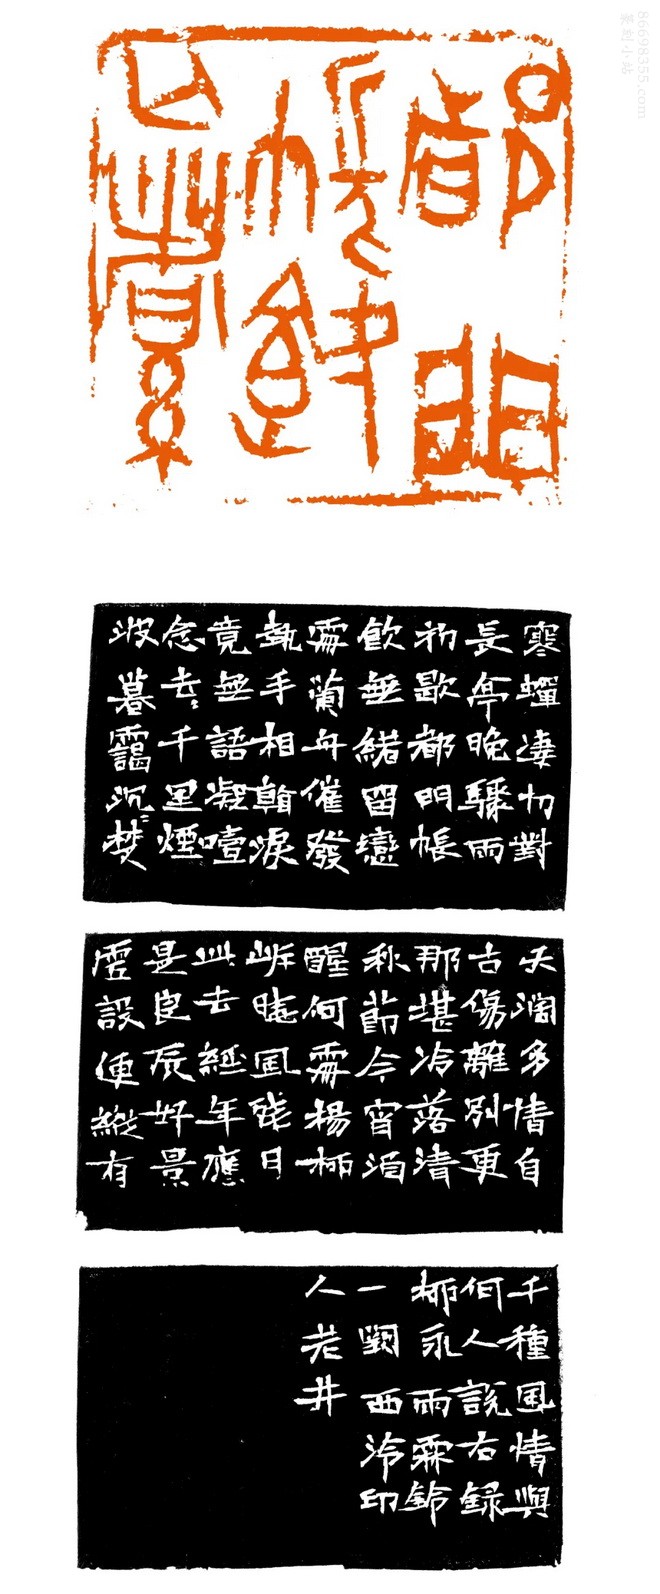 都門
寒蟬淒切對
長亭晚驟雨
初歇都門帳
飲無緒留戀
處蘭舟催發
執手相看淚
竟無語凝噎
念去〻千里煙
波暮靄沉〻楚
天闊多情自
古傷離別更
那堪冷落清
秋節今宵酒
醒何處楊柳
岸曉風殘月
此去經年應
是良辰好景
虛設便縱有
千種風情與
何人說右錄
柳永雨霖鈴
一闋西泠印
人老井
86698355.com
篆刻小站